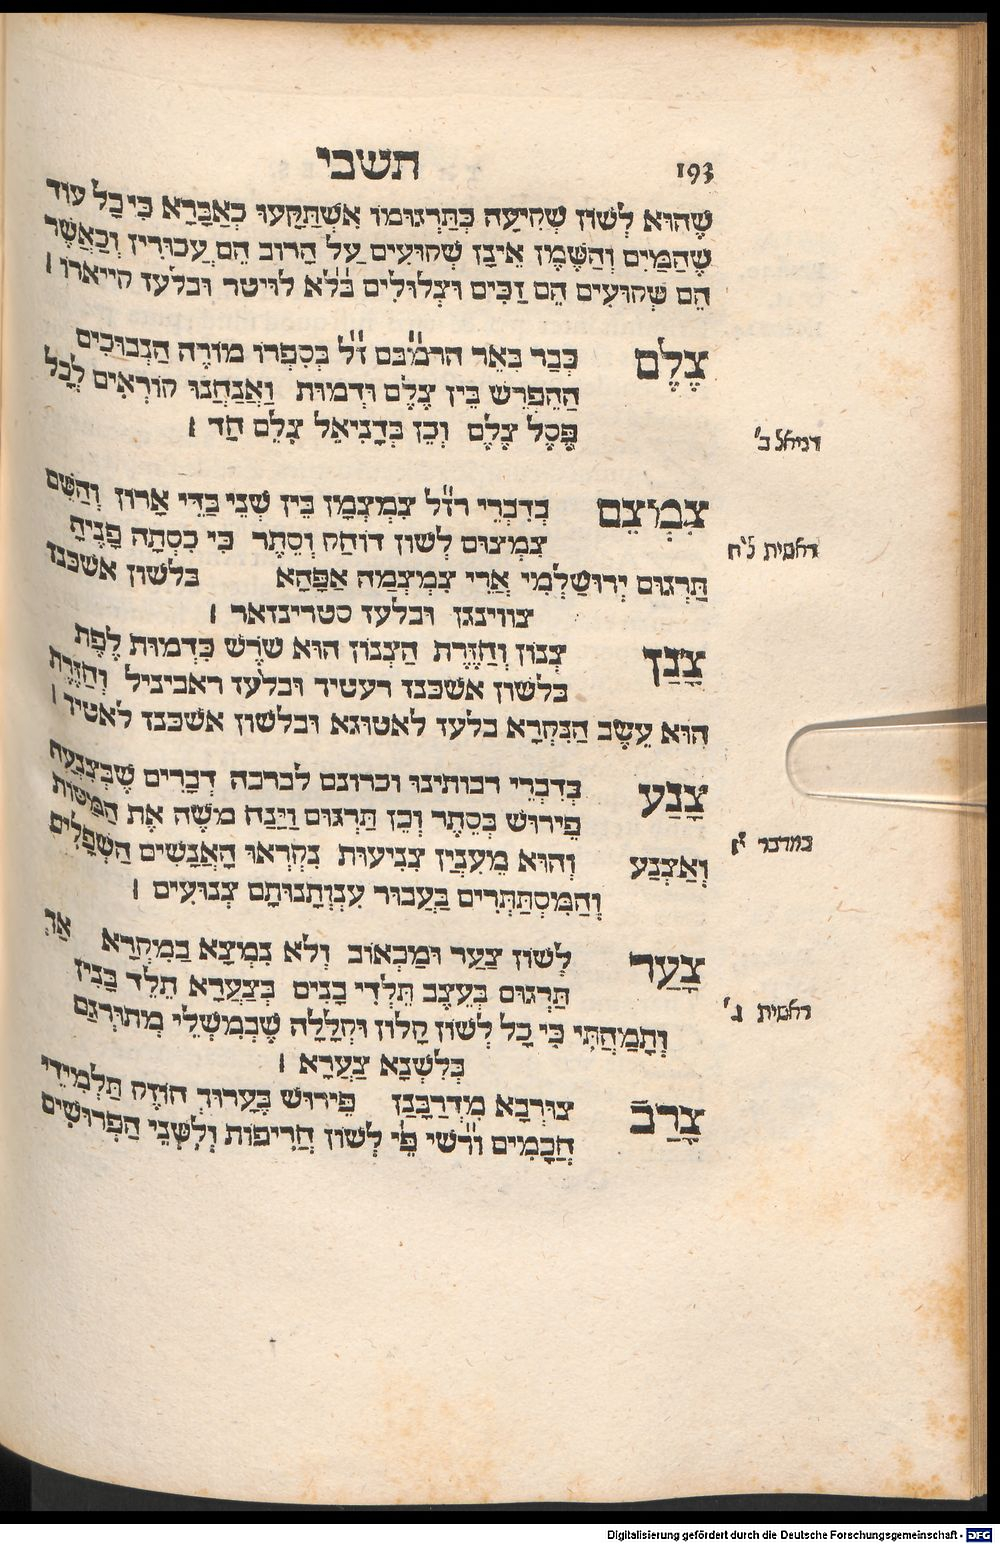 תשבי 193
שֶׁהוּא לְשׁוֹן שְׁקִיעָה כְּתַרְגּוּמוֹ אִשְׁתַּקָּעוּ כְאַבָּרָא כִּי כָל עוֹד
שֶׁהַמַּיִם וְהַשֶּׁמֶן אֵינָן שְׁקוּעִים עַל הָרוֹב הֵם עֲכוּרִין וְכַאֲשֶׁר
הֵם שְׁקוּעִים הֵם זַכִּים וּצְלוּלִים בל״א לויטר ובלעז קייארו ׀
צֶלֶם כְּבָר בֵּאֵר הרמ״בם ז״ל בְּסִפְרוֹ מוֹרֶה הַנְבוּכִים
הַהֶפְרֵשׁ בֵּין צֶלֶם וּדְמוּת וַאֲנַחְנוּ קוֹרְאִים לְכָל
פֶּסֶל צֶלֶם וְכֵן בְּדָנִיאֵל צְלֵם חַד ׀
דניאל ב׳
צִמְצֵם בְּדִבְרֵי רז״ל צִמְצְמָן בֵּין שְׁנֵי בַּדֵּי אָרוֹן וְהַשֵּׁם
צִמְצוּם לְשׁוֹן דּוֹחַק וְסֵתֶר כִּי כִסְתָה פָנֶיהָ
בראשית ל״ח
תַּרְגּוּם יְרוּשַׁלְמִי אֲרֵי צִמְצְמַה אַפָּהָא בלשון אשכנז
צווינגן ובלעז סטרינזאר ׀
צָנַן צְנוֹן וְחַזֶּרֶת הַצְנוֹן הוּא שׁרֶשׁ כִּדְמוּת לֶפֶת
בלשון אשכנז רעטיך ובלעז ראביניל וְחַזֶּרֶת
הוּא עֵשֶׂב הַנִּקְרָא בלעז לאטוגא ובלשון אשכנז לאטיך ׀
צָנַע בְּדִבְרֵי רבותינו זכרונם לברכה דְּבָרִים שֶׁבְּצִנְעָה
פֵּירוּשׁ בְּסֵתֶר וְכֵן תַּרְגּוּם וַיַּנַּח מֹשֶׁה אֶת הַמַּטּוֹת
במדבר י״ז
וְאַצְנַע וְהוּא מֵעִנְיַן צְנִיעוּת נִקְרְאוּ הָאֲנָשִׁים הַשְּׁפָלִים
וְהַמִּסְתַּתְּרִים בַּעֲבוּר עִנְוְתָנוּתָם צְנוּעִים ׀
צָעַר לְשׁוֹן צַעַר וּמַכְאוֹב וְלֹא נִמְצָא בַמִּקְרָא אַךְ
תַּרְגּוּם בְּעֶצֶב תֵּלְדִי בָנִים בְּצַעֲרָא תֵלֵד בְּנִין
בראשית ג׳
וְתָמַהְתִּי כִּי כָל לְשׁוֹן קָלוֹן וּקְלָלָה שֶׁבְּמִשְׁלֵי מְתוּרְגָּם
בְּלִשְׁנָא צַעֲרָא ׀
צָרַב צוּרְבָא מִדְרַבָּנַן פֵּירוּשׁ בֶּעָרוּךְ חוֹזֶק תַּלְמִידֵי
חֲכָמִים ור״שי פי׳ לְשׁוֹן חֲרִיפוּת וְלִשְׁנֵי הַפֵּרוּשִׁים
Digitalisierung gefördert durch die Deutsche Forschungsgemeinschaft - DFG